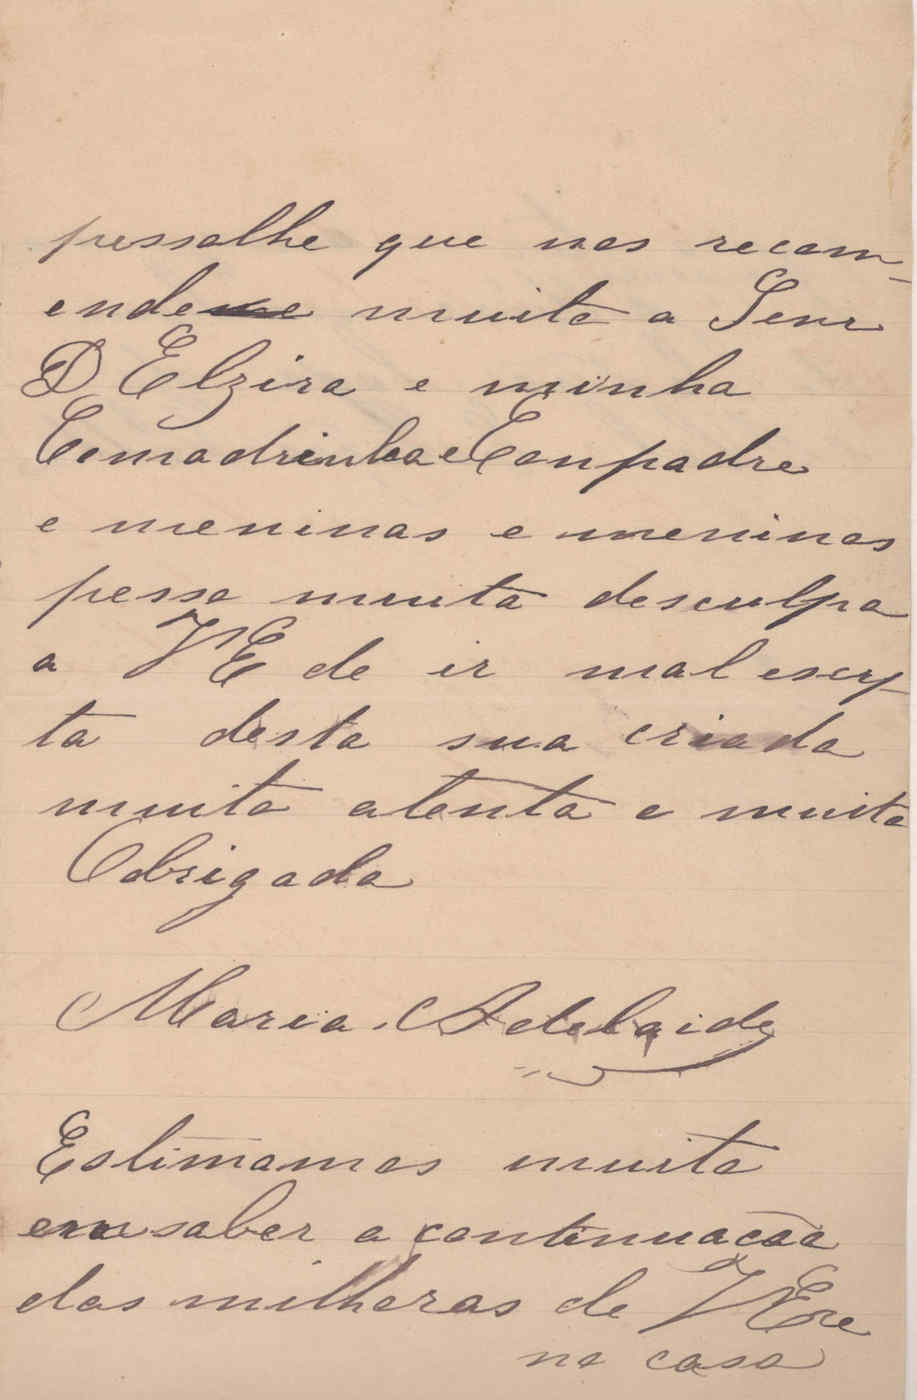 pessolhe que nos recom-
ende muito a Senr
D Elzira e minha
Comadrinha e Conpadre
e meninas e meninos
pesso muita desculpa
a VE de ir mal escry-
ta desta sua criada
muito atenta e muito
Obrigada
Maria Adelaide
Estimamos muito
em saber a continuacão
das milhoras de VExe
no casa